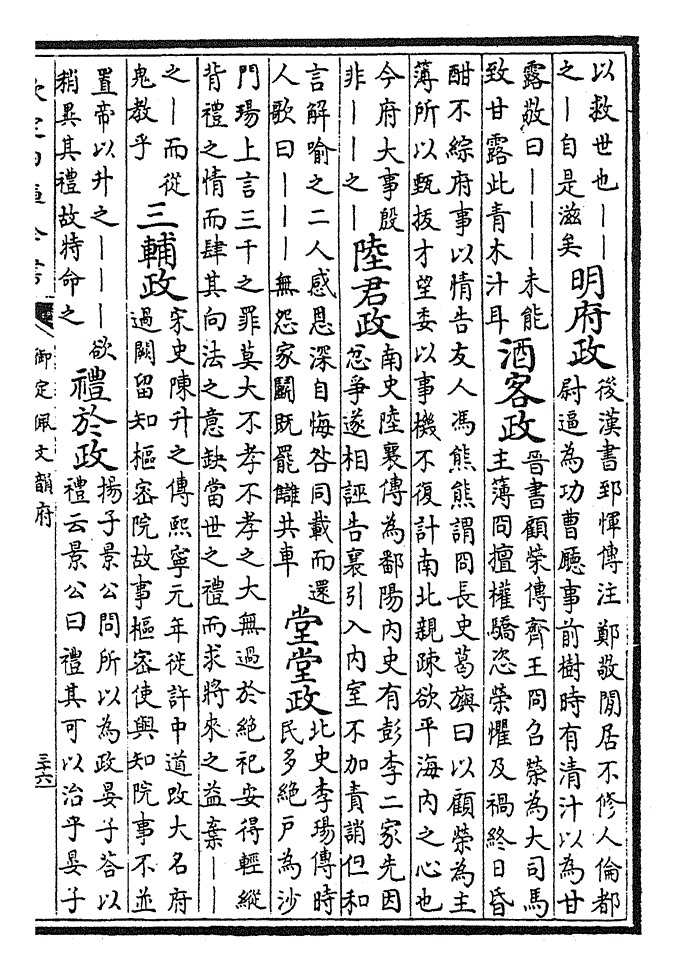 以救世也——
之—自是滋矣
明府政
後漢書郅惲傳注鄭敬閒居不修人倫都
尉逼為功曹廳事前樹時有清汁以為甘
露敬曰———未能
致甘露此青木汁耳
酒客政
晉書顧榮傳齊王冏召榮為大司馬
主簿冏擅權驕恣榮懼及禍終日昏
酣不綜府事以情告友人馮熊熊謂冏長史葛旟曰以顧榮為主
簿所以甄拔才望委以事機不復計南北親疎欲平海内之心也
今府大事殷
非——之—
陸君政
南史陸襄傳為鄱陽内史有彭李二家先因
忿爭遂相誣告襄引入内室不加責誚但和
言解喻之二人感恩深自悔咎同載而還
人歌曰———無怨家鬭既罷讎共車
堂堂政
北史李瑒傳時
民多絶戶為沙
門瑒上言三千之罪莫大不孝不孝之大無過於絶祀安得輕縱
背禮之情而肆其向法之意缺當世之禮而求將來之益棄——
之—而從
鬼教乎
三輔政
宋史陳升之傳熙寧元年徙許中道改大名府
過闕留知樞密院故事樞密使與知院事不並
置帝以升之———欲
稍異其禮故特命之
禮於政
揚子景公問所以為政晏子答以
禮云景公曰禮其可以治乎晏子
御定佩文韻府
三十六